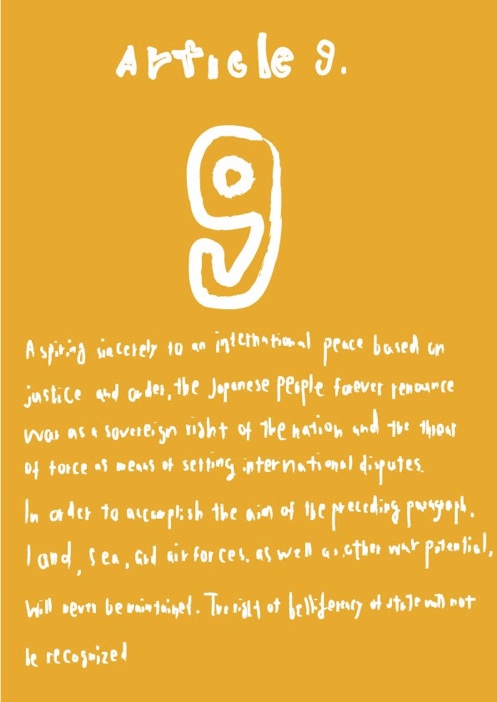 Article 9.
9
Aspiring sincerely to an international peace based on
justice and order, the Japanese people forever renounce
war as a sovereign right of the nation and the threat
of force as means of settling international disputes.
In order to accomplish the aim of the preceding paragraph,
land, sea, and air forces, as well as other war potential,
will never be maintained. The right of belligerency of state will not
be recognized